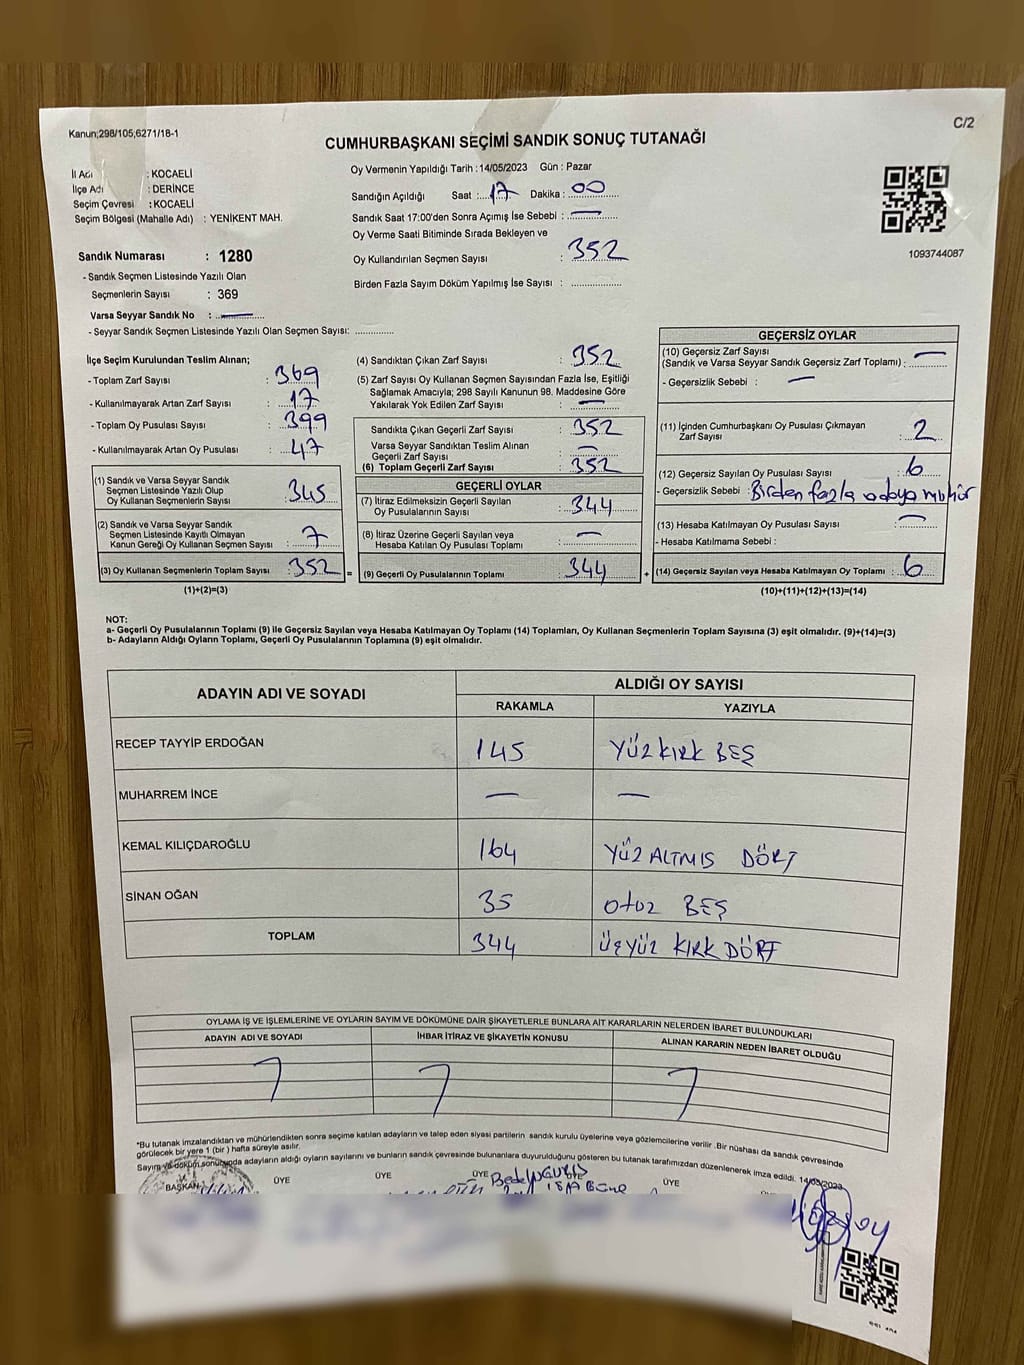 Kanun;298/105,6271/18-1
C/2
CUMHURBAŞKANI SEÇİMİ SANDIK SONUÇ TUTANAĞI
İl Adı : KOCAELİ
İlçe Adı : DERİNCE
Seçim Çevresi : KOCAELİ
Seçim Bölgesi (Mahalle Adı) : YENİKENT MAH.
Sandık Numarası : 1280
- Sandık Seçmen Listesinde Yazılı Olan
Seçmenlerin Sayısı : 369
Varsa Seyyar Sandık No : —
- Seyyar Sandık Seçmen Listesinde Yazılı Olan Seçmen Sayısı:
Oy Vermenin Yapıldığı Tarih :14/05/2023 Gün : Pazar
Sandığın Açıldığı Saat : 17 Dakika : 00
Sandık Saat 17:00'den Sonra Açımış İse Sebebi : —
Oy Verme Saati Bitiminde Sırada Bekleyen ve
Oy Kullandırılan Seçmen Sayısı : 352
Birden Fazla Sayım Döküm Yapılmış İse Sayısı :
1093744087
İlçe Seçim Kurulundan Teslim Alınan;
- Toplam Zarf Sayısı : 369
- Kullanılmayarak Artan Zarf Sayısı : 17
- Toplam Oy Pusulası Sayısı : 399
- Kullanılmayarak Artan Oy Pusulası : 47
(1) Sandık ve Varsa Seyyar Sandık
Seçmen Listesinde Yazılı Olup
Oy Kullanan Seçmenlerin Sayısı : 345
(2) Sandık ve Varsa Seyyar Sandık
Seçmen Listesinde Kayıtlı Olmayan
Kanun Gereği Oy Kullanan Seçmen Sayısı : 7
(3) Oy Kullanan Seçmenlerin Toplam Sayısı : 352
(1)+(2)=(3)
(4) Sandıktan Çıkan Zarf Sayısı : 352
(5) Zarf Sayısı Oy Kullanan Seçmen Sayısından Fazla İse, Eşitliği
Sağlamak Amacıyla; 298 Sayılı Kanunun 98. Maddesine Göre
Yakılarak Yok Edilen Zarf Sayısı : —
Sandıkta Çıkan Geçerli Zarf Sayısı : 352
Varsa Seyyar Sandıktan Teslim Alınan
Geçerli Zarf Sayısı : —
(6) Toplam Geçerli Zarf Sayısı : 352
GEÇERLİ OYLAR
(7) İtiraz Edilmeksizin Geçerli Sayılan
Oy Pusulalarının Sayısı : 344
(8) İtiraz Üzerine Geçerli Sayılan veya
Hesaba Katılan Oy Pusulası Toplamı : —
= (9) Geçerli Oy Pusulalarının Toplamı : 344
GEÇERSİZ OYLAR
(10) Geçersiz Zarf Sayısı
(Sandık ve Varsa Seyyar Sandık Geçersiz Zarf Toplamı) : —
- Geçersizlik Sebebi : —
(11) İçinden Cumhurbaşkanı Oy Pusulası Çıkmayan
Zarf Sayısı : 2
(12) Geçersiz Sayılan Oy Pusulası Sayısı : 6
- Geçersizlik Sebebi : Birden fazla adaya mühür
(13) Hesaba Katılmayan Oy Pusulası Sayısı : —
- Hesaba Katılmama Sebebi :
+ (14) Geçersiz Sayılan veya Hesaba Katılmayan Oy Toplamı : 6
(10)+(11)+(12)+(13)=(14)
NOT:
a- Geçerli Oy Pusulalarının Toplamı (9) ile Geçersiz Sayılan veya Hesaba Katılmayan Oy Toplamı (14) Toplamları, Oy Kullanan Seçmenlerin Toplam Sayısına (3) eşit olmalıdır. (9)+(14)=(3)
b- Adayların Aldığı Oyların Toplamı, Geçerli Oy Pusulalarının Toplamına (9) eşit olmalıdır.
ADAYIN ADI VE SOYADI
ALDIĞI OY SAYISI
RAKAMLA YAZIYLA
RECEP TAYYİP ERDOĞAN 145 YÜZ KIRK BEŞ
MUHARREM İNCE — —
KEMAL KILIÇDAROĞLU 164 YÜZ ALTMIS DÖRT
SİNAN OĞAN 35 otuz BEŞ
TOPLAM 344 ÜÇYÜZ KIRK DÖRT
OYLAMA İŞ VE İŞLEMLERİNE VE OYLARIN SAYIM VE DÖKÜMÜNE DAİR ŞİKAYETLERLE BUNLARA AİT KARARLARIN NELERDEN İBARET BULUNDUKLARI
ADAYIN ADI VE SOYADI İHBAR İTİRAZ VE ŞİKAYETİN KONUSU ALINAN KARARIN NEDEN İBARET OLDUĞU
*Bu tutanak imzalandıktan ve mühürlendikten sonra seçime katılan adayların ve talep eden siyasi partilerin sandık kurulu üyelerine veya gözlemcilerine verilir .Bir nüshası da sandık çevresinde
görülecek bir yere 1 (bir ) hafta süreyle asılır.
Sayım ve döküm sonucunda adayların aldığı oyların sayılarını ve bunların sandık çevresinde bulunanlara duyurulduğunu gösteren bu tutanak tarafımızdan düzenlenerek imza edildi. 14/05/2023
BAŞKAN ÜYE ÜYE ÜYE ÜYE